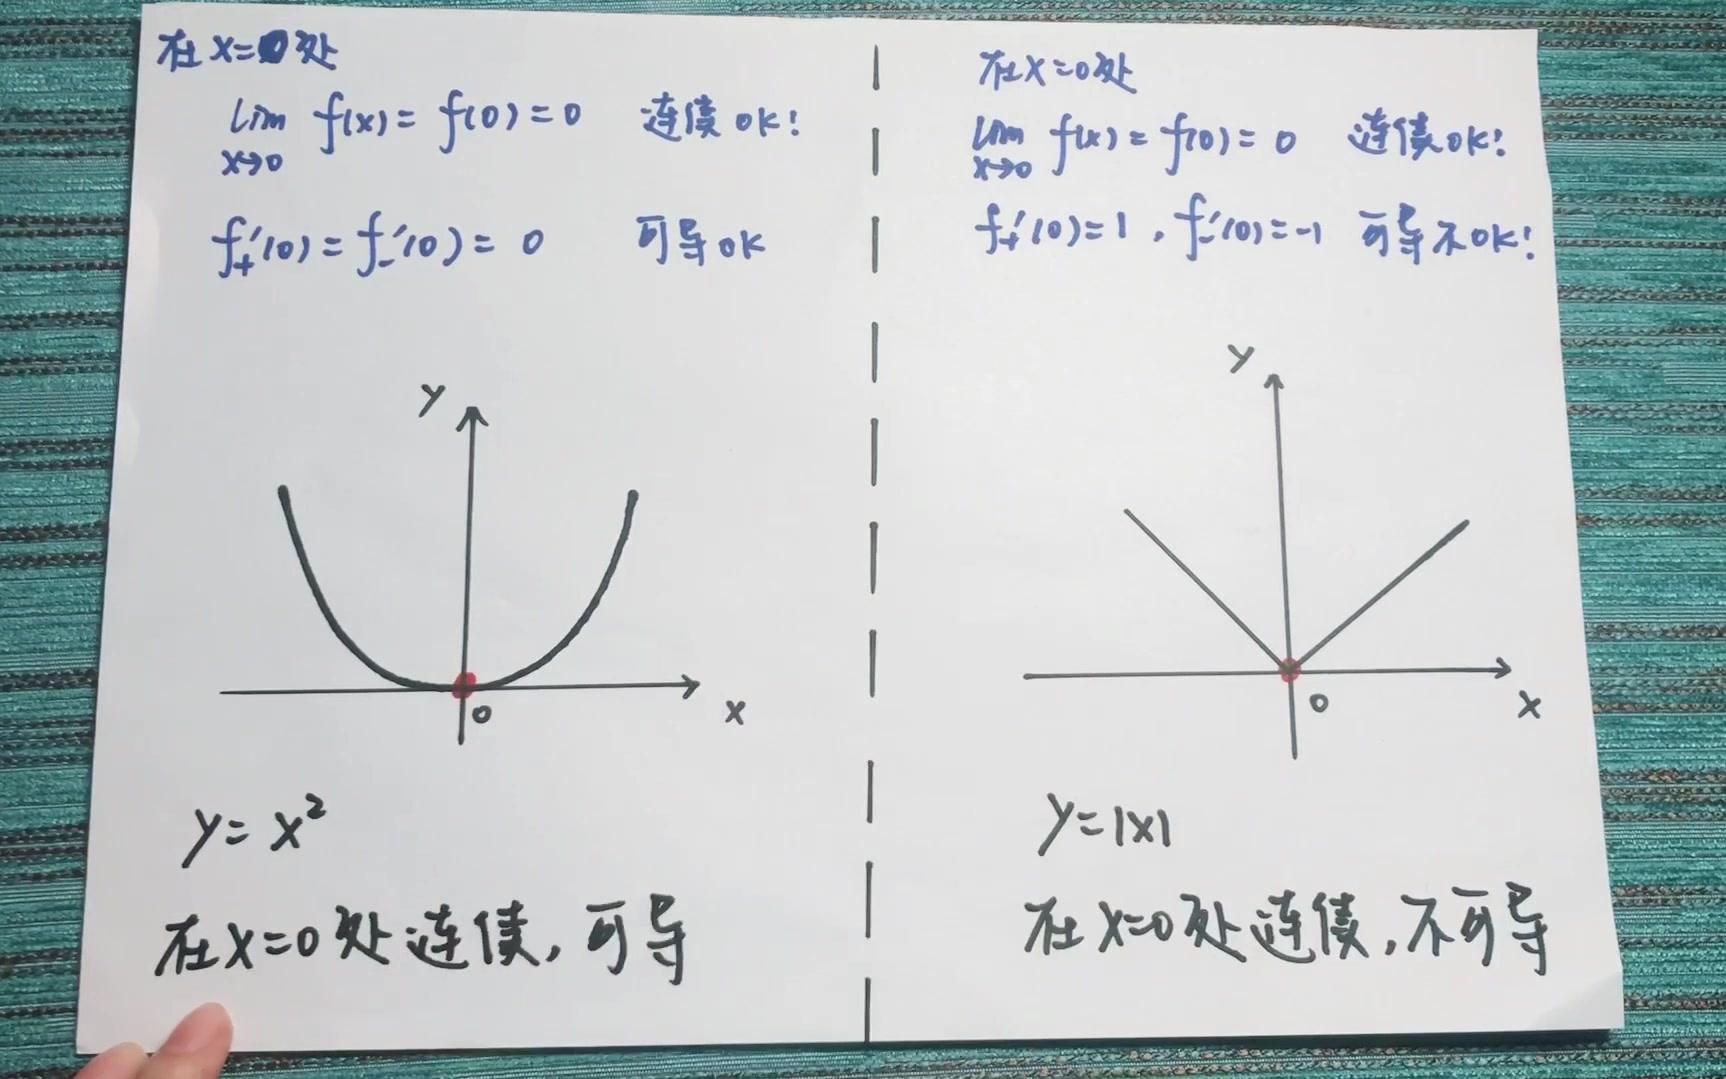 在x=0处
lim f(x)=f(0)=0 连续OK!
x→0
f₊′(0)=f₋′(0)=0 可导OK
y
x
0
y=x²
在x=0处连续,可导
在x=0处
lim f(x)=f(0)=0 连续OK!
x→0
f₊′(0)=1,f₋′(0)=-1 可导不OK!
y
0
x
y=|x|
在x=0处连续,不可导